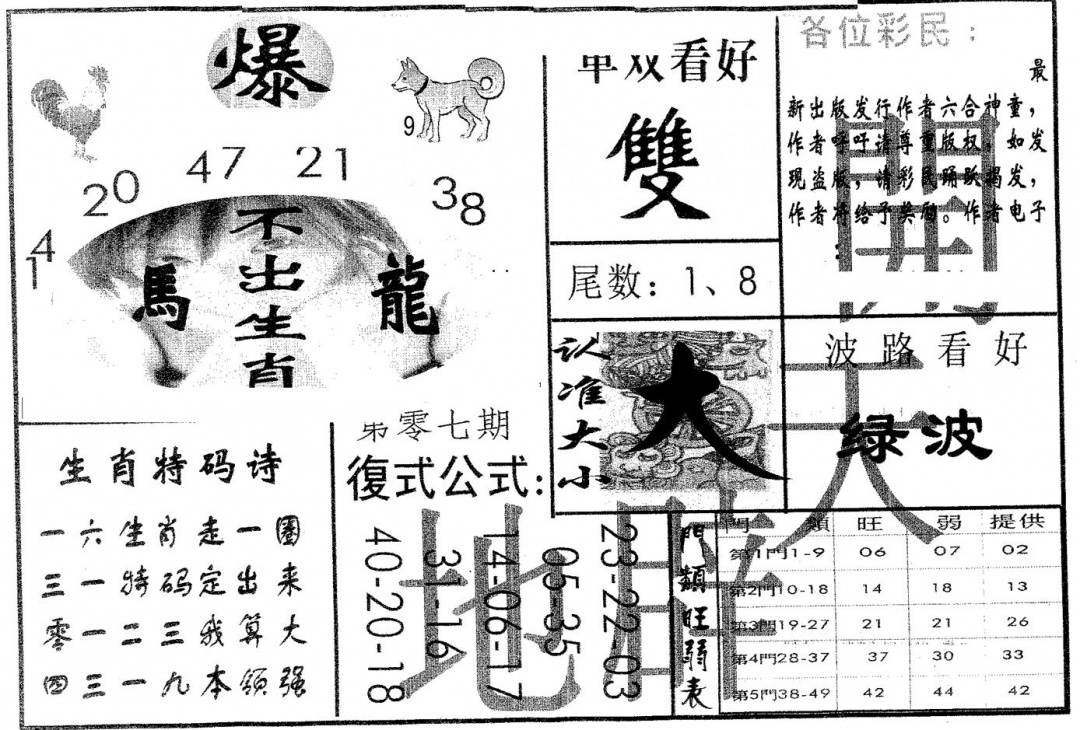 爆
9
14
20
47
21
38
不出生肖
馬
龍
单双看好
雙
尾数：1、8
各位彩民：
最
新出版发行作者六合神童，
作者呼吁请尊重版权，如发
现盗版，请彩民踊跃揭发，
作者将给予奖励。作者电子
：
認准大小
大
波路看好
绿波
生肖特码诗
一六生肖走一圈
三一特码定出来
零一二三我算大
四三一九本领强
第零七期
復式公式：
23-22-03
05-35
14-06-17
31-16
40-20-18
門類旺弱表
門類 旺 弱 提供
第1門1-9 06 07 02
第2門10-18 14 18 13
第3門19-27 21 21 26
第4門28-37 37 30 33
第5門38-49 42 44 42